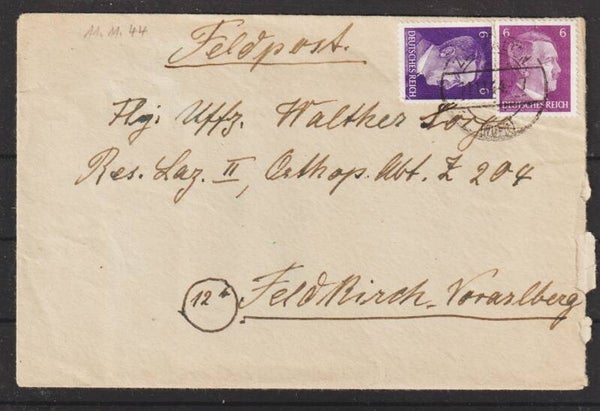 11.11.44
Feldpost.
6 DEUTSCHES REICH 6
6 6
DEUTSCHES REICH
Flg. Uffz. Walther
Res. Laz. II, Orthop. Abt. Z 204
12b
Feldkirch - Vorarlberg